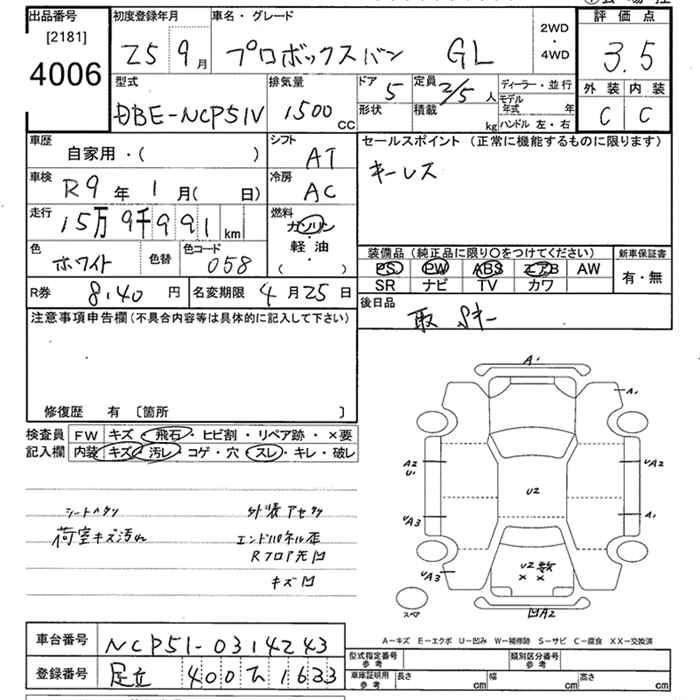 出品番号 初度登録年月 車名・グレード 評価点
[2181]
4006
25 9月 プロボックスバン GL 2WD・4WD 3.5
型式 排気量 ドア 5 定員 2/5 人 ディーラー・並行 外装 内装
DBE-NCP51V 1500 CC 形状 積載 kg モデル年式 年 ハンドル 左・右 C C
車歴 自家用・( ) シフト AT セールスポイント (正常に機能するものに限ります)
車検 R9年 1月( 日) 冷房 AC キーレス
走行 15万9千991 km 燃料 ガソリン・軽油 ( )
色 ホワイト 色替 色コード 058
装備品 (純正品に限り○をつけてください) 新車保証書
PS PW ABS エアB AW 有・無
SR ナビ TV カワ
R券 8.140 円 名変期限 4月25日 後日品
取 Sキー
注意事項申告欄 (不具合内容等は具体的に記入して下さい)
修復歴 有 〔箇所 〕
検査員 記入欄
FW キズ・飛石・ヒビ割・リペア跡・×要
内装 キズ・汚レ・コゲ・穴・スレ・キレ・破レ
荷室キズ汚れ
エンドパネル
Rフロア
キズ凹
A1
A1
A2
U1
UA2
U2
UA3
A1
UA3
U2
× ×
スペア
凹A2
A-キズ E-エクボ U-凹み W-補修跡 S-サビ C-腐食 XX-交換済
車台番号 NCP51-0314243
登録番号 足立 400 1633
型式指定番号 参考 類別区分番号 参考
車庫証明用 参考 長さ cm 幅 cm 高さ cm